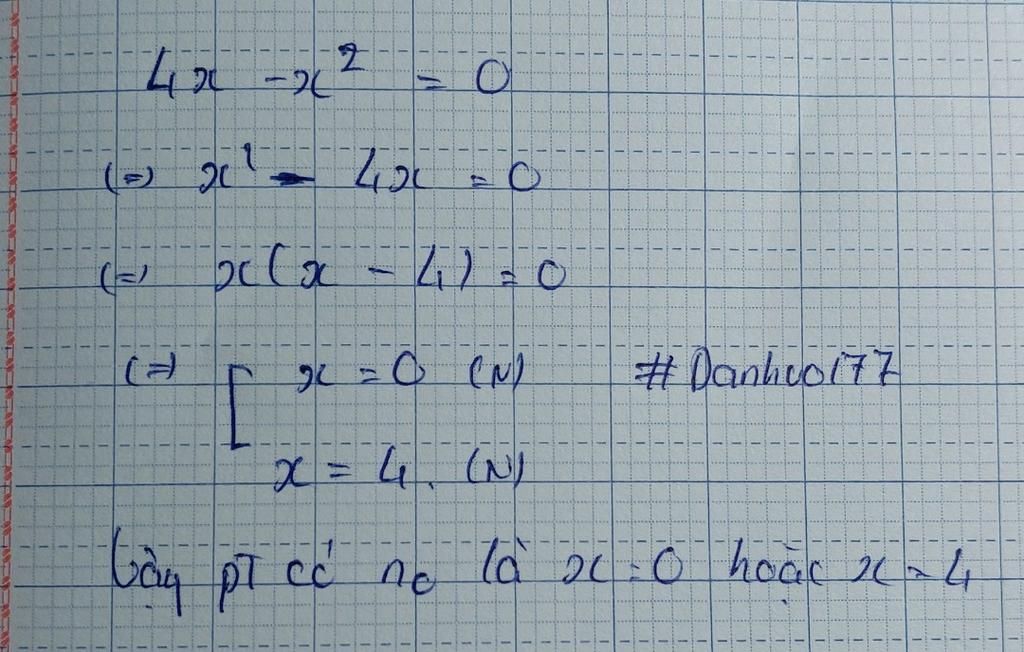 4x - x² = 0
(=) x² - 4x = 0
(=) x(x - 4) = 0
(=) [ x = 0 (N) #Danhvo177
x = 4. (N)
Vậy pT có no là x = 0 hoặc x = 4